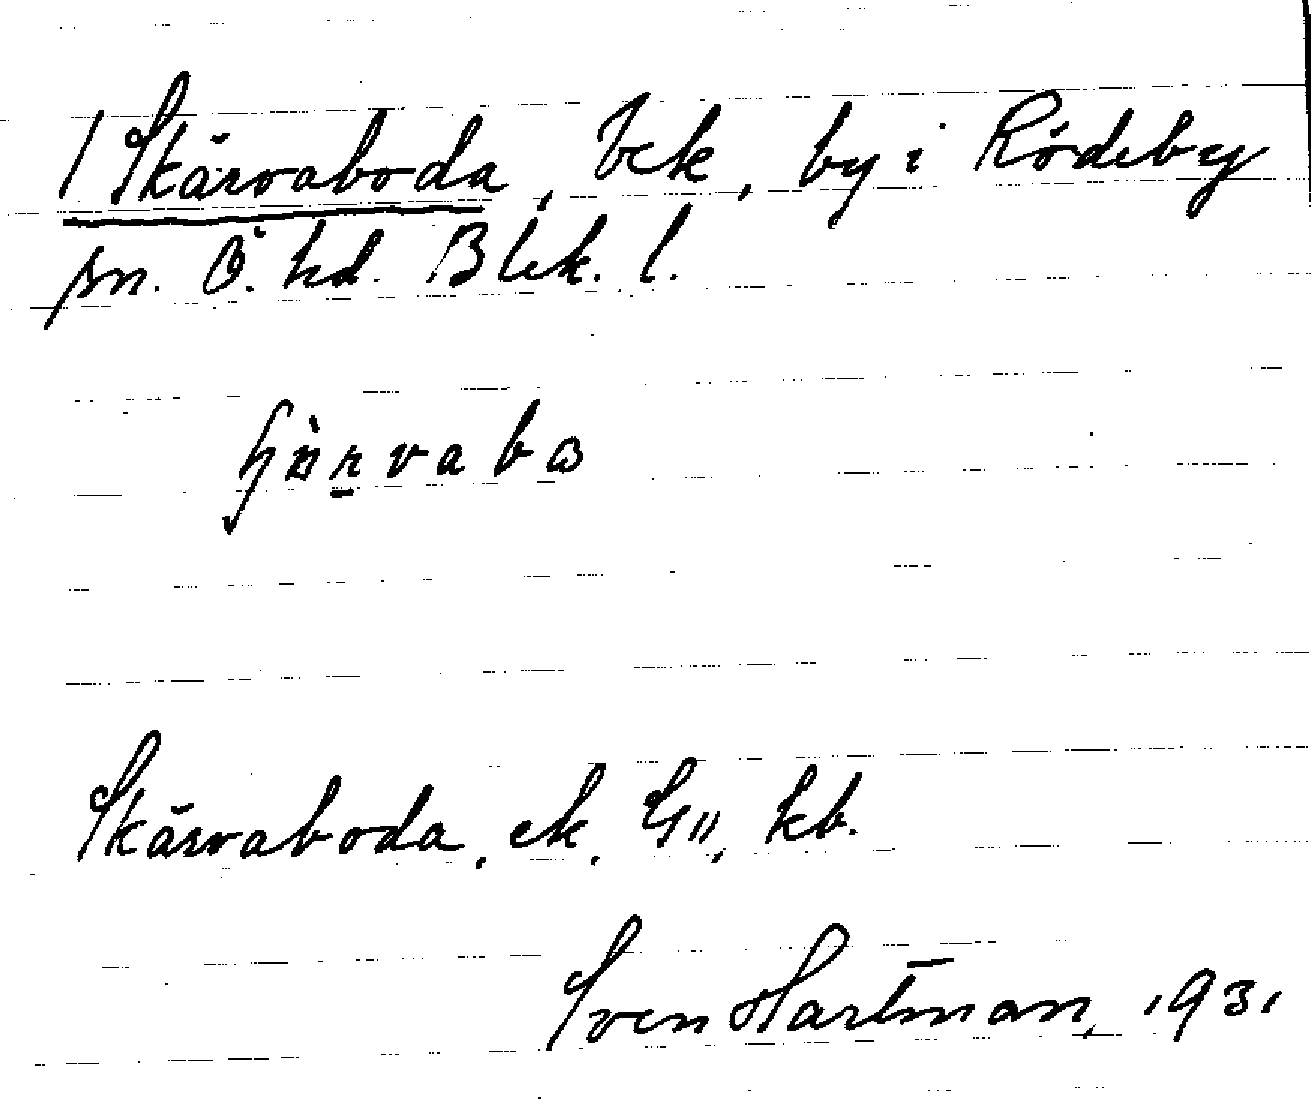 / Skärvaboda, bck, by i Rödeby
sn. Ö. hd. Blek. l.
Skärvaboda, ek. G11, kb.
Sven Hartman, 1931